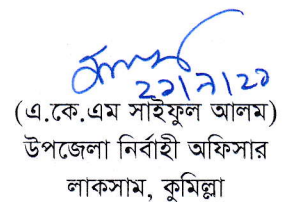 ২১/৭/২১
(এ.কে.এম সাইফুল আলম)
উপজেলা নির্বাহী অফিসার
লাকসাম, কুমিল্লা